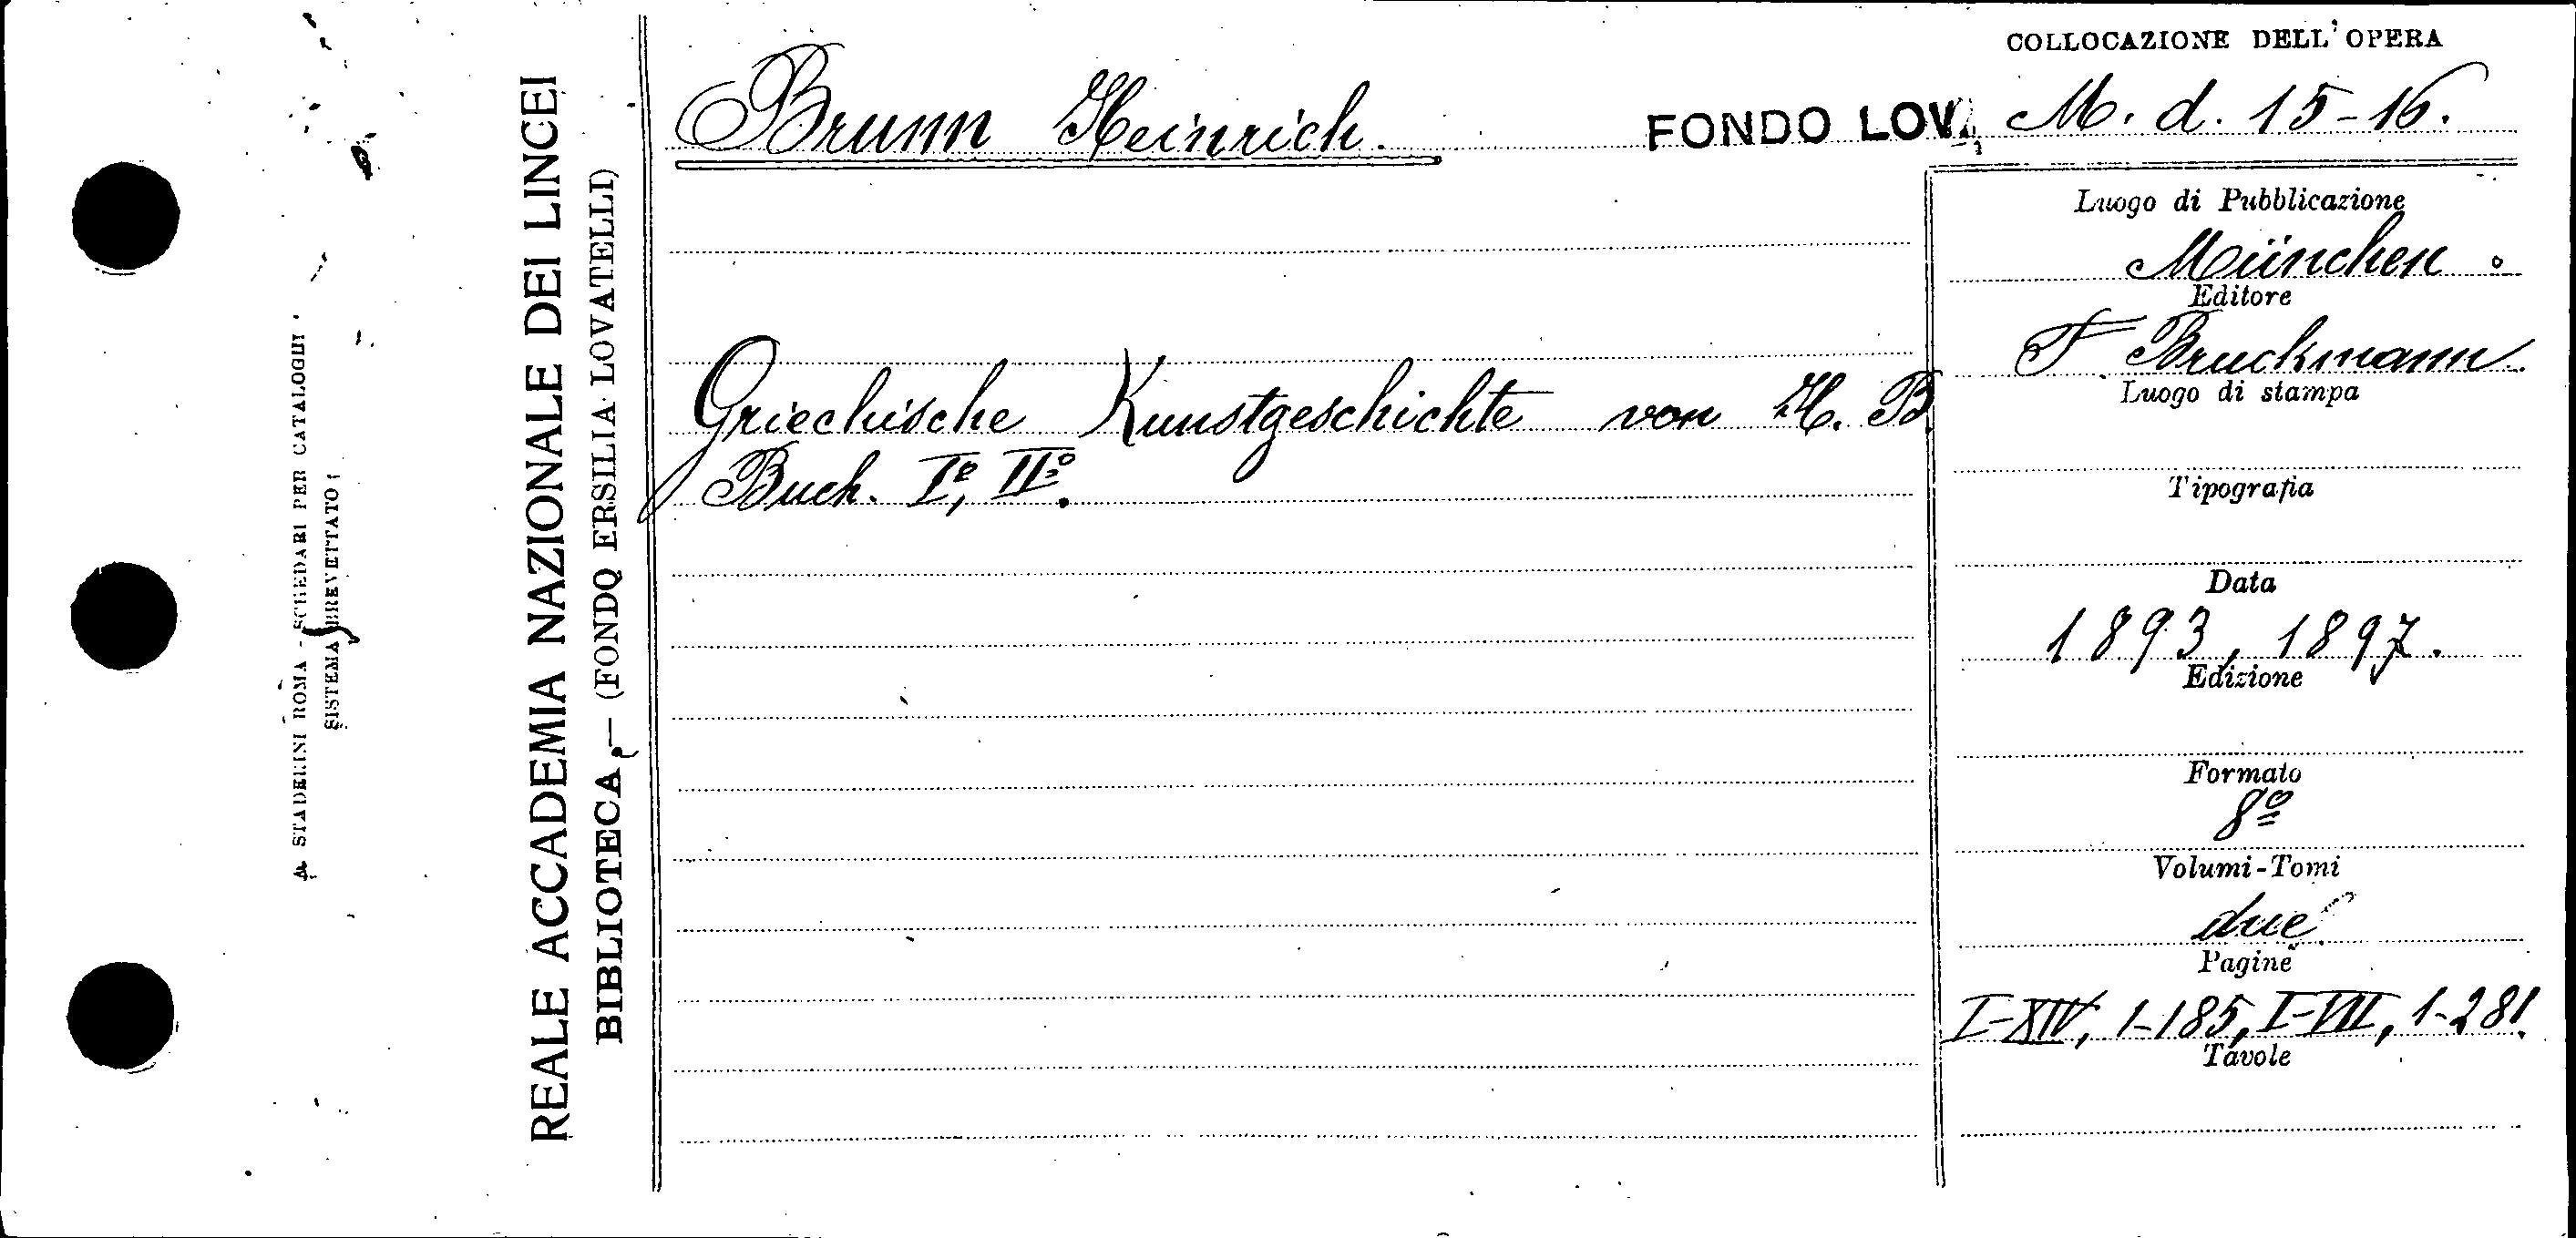 COLLOCAZIONE DELL'OPERA
Brunn Heinrich.
FONDO LOV. M. d. 15-16.
Griechische Kunstgeschichte von H. B.
Buch. Iº, IIº.
Luogo di Pubblicazione
München.
Editore
F. Bruckmann.
Luogo di stampa
Tipografia
Data
1893, 1897.
Edizione
Formato
8º
Volumi-Tomi
due
Pagine
I-XIV, 1-185, I-VII, 1-281.
Tavole
REALE ACCADEMIA NAZIONALE DEI LINCEI
BIBLIOTECA — (FONDO ERSILIA LOVATELLI)
STADERINI ROMA - SCHEDARI PER CATALOGHI
SISTEMA BREVETTATO